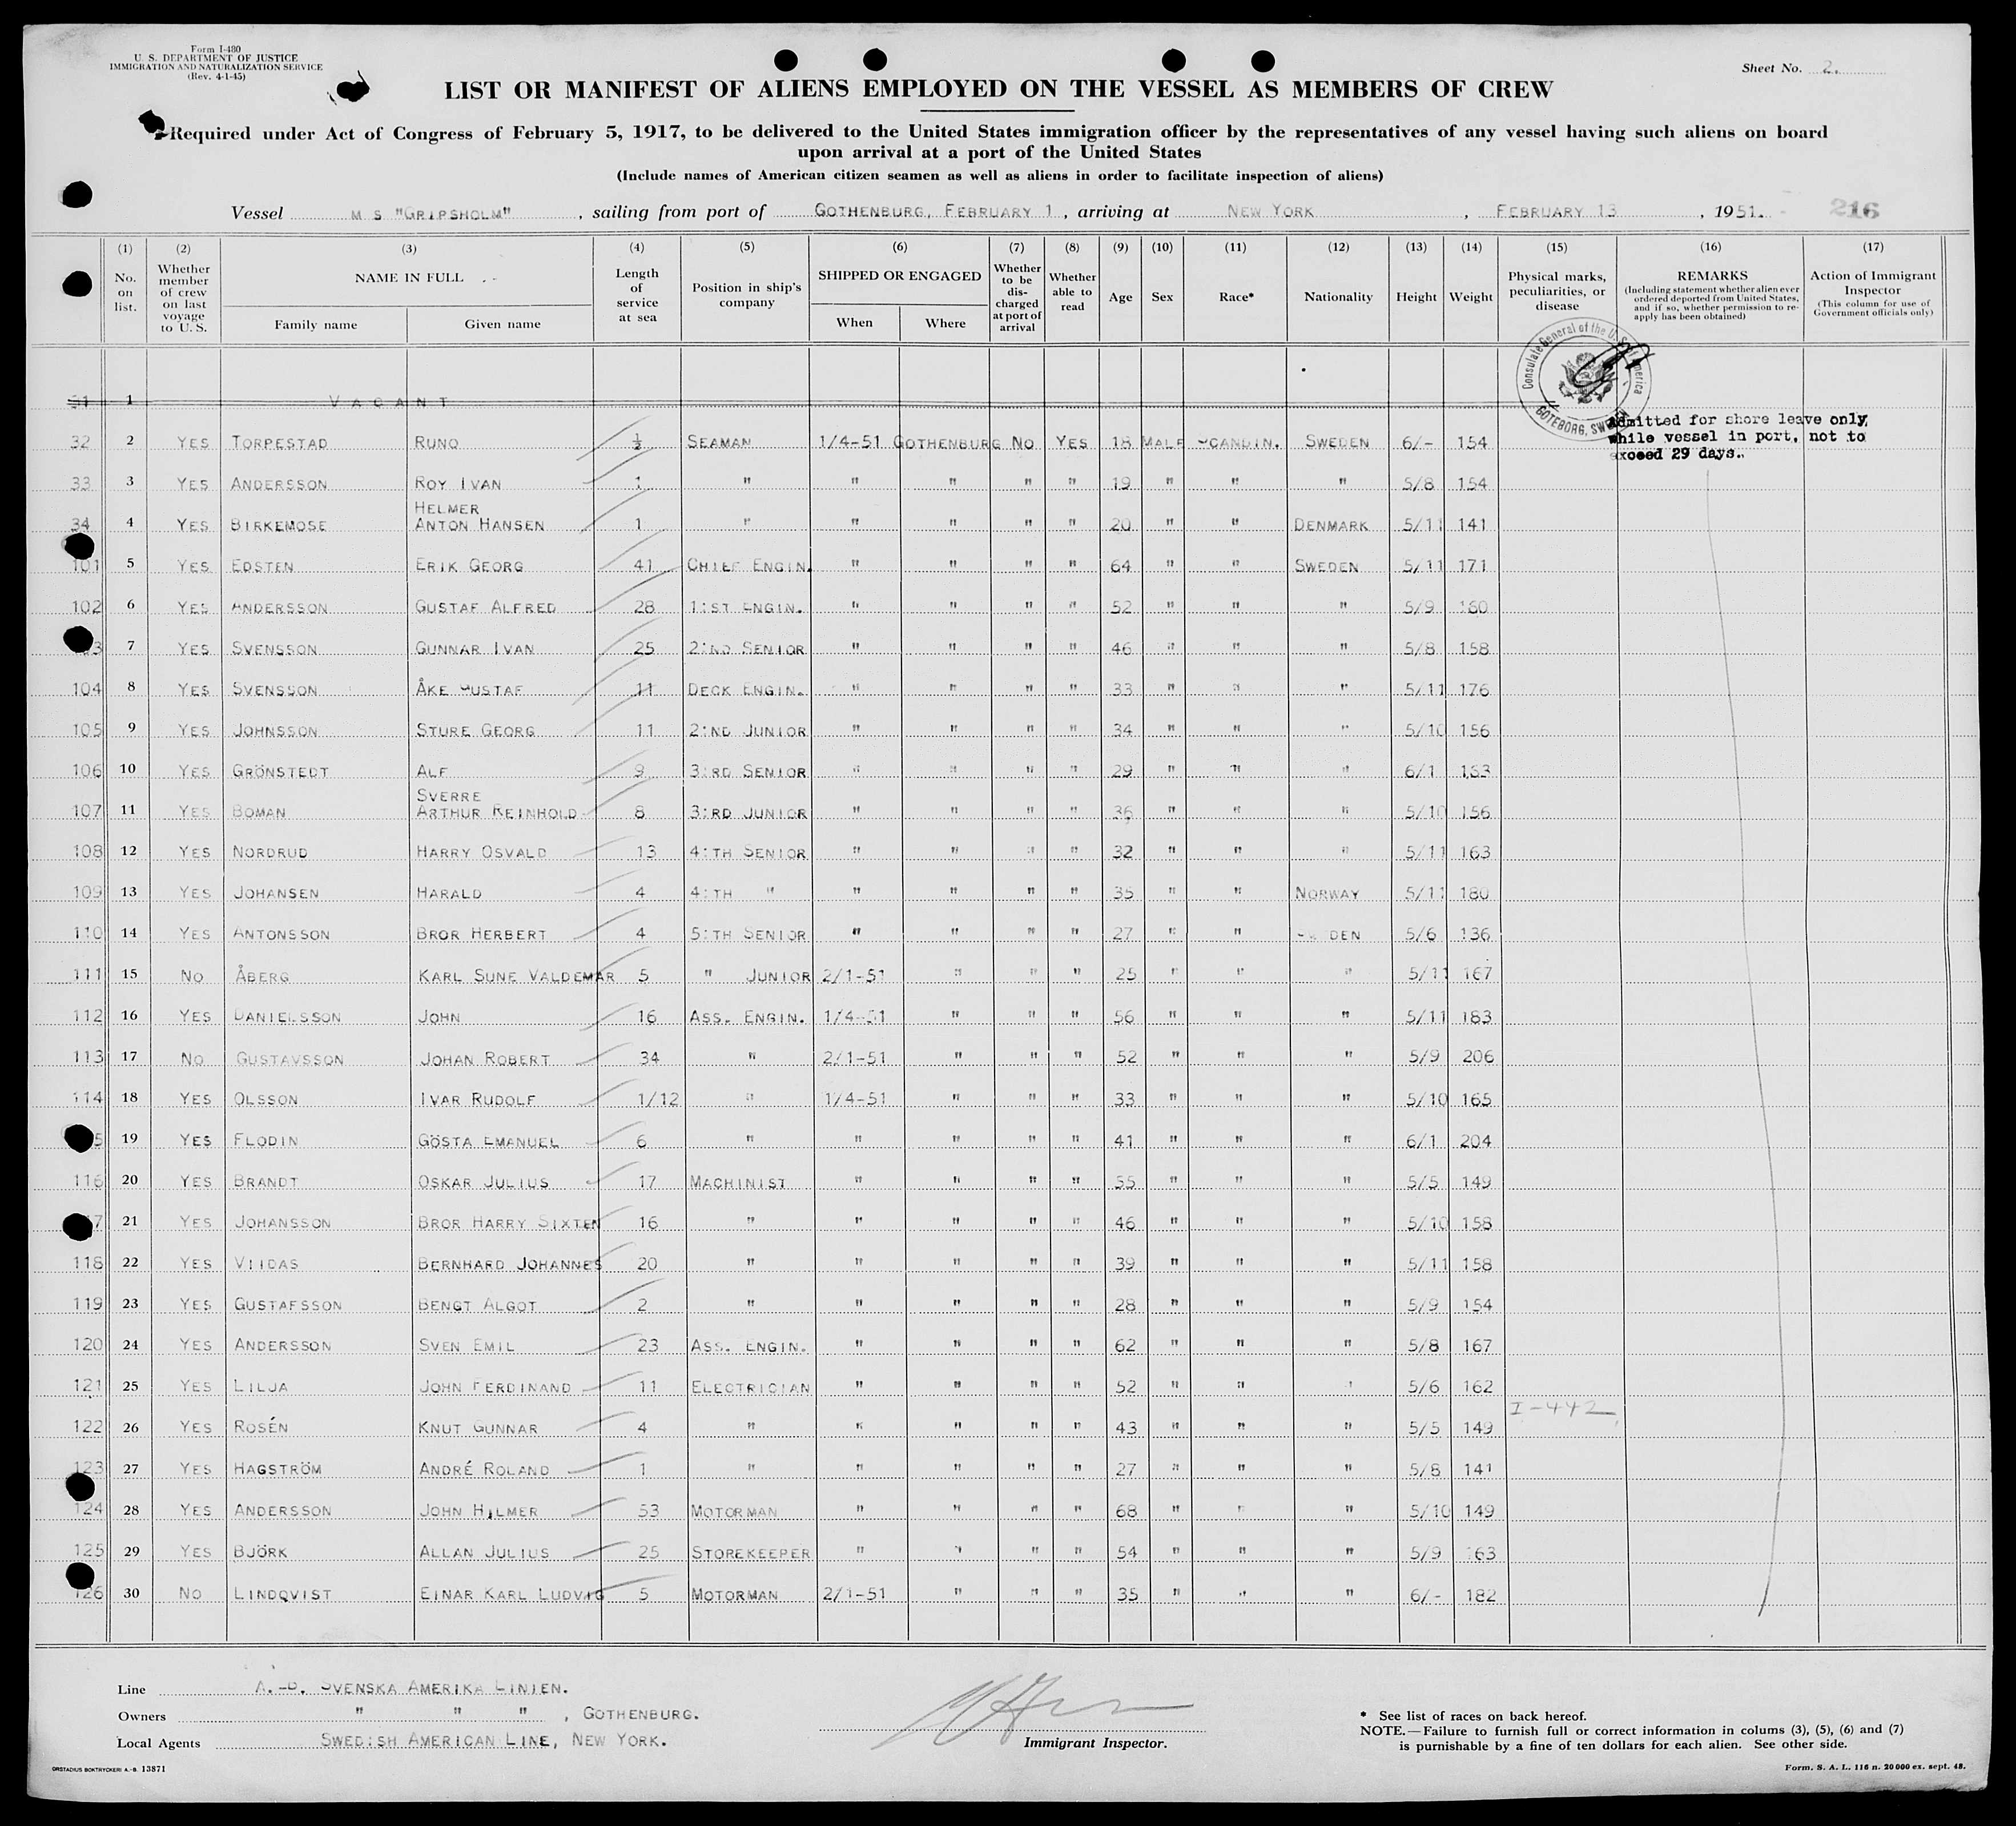 Form I-480
U. S. DEPARTMENT OF JUSTICE
IMMIGRATION AND NATURALIZATION SERVICE
(Rev. 4-1-45)
Sheet No. 2.
LIST OR MANIFEST OF ALIENS EMPLOYED ON THE VESSEL AS MEMBERS OF CREW
Required under Act of Congress of February 5, 1917, to be delivered to the United States immigration officer by the representatives of any vessel having such aliens on board
upon arrival at a port of the United States
(Include names of American citizen seamen as well as aliens in order to facilitate inspection of aliens)
Vessel M S "GRIPSHOLM", sailing from port of GOTHENBURG, FEBRUARY 1, arriving at NEW YORK, FEBRUARY 13, 1951. 216
(1) No. on list. (2) Whether member of crew on last voyage to U. S. (3) NAME IN FULL Family name Given name (4) Length of service at sea (5) Position in ship's company (6) SHIPPED OR ENGAGED When Where (7) Whether to be discharged at port of arrival (8) Whether able to read (9) Age (10) Sex (11) Race* (12) Nationality (13) Height (14) Weight (15) Physical marks, peculiarities, or disease (16) REMARKS (Including statement whether alien ever ordered deported from United States, and if so, whether permission to re-apply has been obtained) (17) Action of Immigrant Inspector (This column for use of Government officials only)
Consulate General of the U. S. of America GOTEBORG, SWEDEN
31 1 VACANT
Admitted for shore leave only
while vessel in port, not to
exceed 29 days.
32 2 YES TORPESTAD RUNO ½ SEAMAN 1/4-51 GOTHENBURG NO YES 18 MALE SCANDIN. SWEDEN 6/- 154
33 3 YES ANDERSSON ROY IVAN 1 " " " " " 19 " " " 5/8 154
HELMER
34 4 YES BIRKEMOSE ANTON HANSEN 1 " " " " " 20 " " DENMARK 5/11 141
101 5 YES EDSTEN ERIK GEORG 41 CHIEF ENGIN. " " " " 64 " " SWEDEN 5/11 171
102 6 YES ANDERSSON GUSTAF ALFRED 28 1:ST ENGIN. " " " " 52 " " " 5/9 160
3 7 YES SVENSSON GUNNAR IVAN 25 2:ND SENIOR " " " " 46 " " " 5/8 158
104 8 YES SVENSSON ÅKE GUSTAF 11 DECK ENGIN. " " " " 33 " " " 5/11 176
105 9 YES JOHNSSON STURE GEORG 11 2:ND JUNIOR " " " " 34 " " " 5/10 156
106 10 YES GRÖNSTEDT ALF 9 3:RD SENIOR " " " " 29 " " " 6/1 163
SVERRE
107 11 YES BOMAN ARTHUR REINHOLD 8 3:RD JUNIOR " " " " 36 " " " 5/10 156
108 12 YES NORDRUD HARRY OSVALD 13 4:TH SENIOR " " " " 32 " " " 5/11 163
109 13 YES JOHANSEN HARALD 4 4:TH " " " " " 35 " " NORWAY 5/11 180
110 14 YES ANTONSSON BROR HERBERT 4 5:TH SENIOR " " " " 27 " " SWEDEN 5/6 136
111 15 NO ÅBERG KARL SUNE VALDEMAR 5 " JUNIOR 2/1-51 " " " 25 " " " 5/11 167
112 16 YES DANIELSSON JOHN 16 ASS. ENGIN. 1/4-51 " " " 56 " " " 5/11 183
113 17 NO GUSTAVSSON JOHAN ROBERT 34 " 2/1-51 " " " 52 " " " 5/9 206
114 18 YES OLSSON IVAR RUDOLF 1/12 " 1/4-51 " " " 33 " " " 5/10 165
5 19 YES FLODIN GÖSTA EMANUEL 6 " " " " " 41 " " " 6/1 204
116 20 YES BRANDT OSKAR JULIUS 17 MACHINIST " " " " 55 " " " 5/5 149
7 21 YES JOHANSSON BROR HARRY SIXTEN 16 " " " " " 46 " " " 5/10 158
118 22 YES VIIDAS BERNHARD JOHANNES 20 " " " " " 39 " " " 5/11 158
119 23 YES GUSTAFSSON BENGT ALGOT 2 " " " " " 28 " " " 5/9 154
120 24 YES ANDERSSON SVEN EMIL 23 ASS. ENGIN. " " " " 62 " " " 5/8 167
121 25 YES LILJA JOHN FERDINAND 11 ELECTRICIAN " " " " 52 " " " 5/6 162
122 26 YES ROSÉN KNUT GUNNAR 4 " " " " " 43 " " " 5/5 149 I-442
123 27 YES HAGSTRÖM ANDRÉ ROLAND 1 " " " " " 27 " " " 5/8 141
124 28 YES ANDERSSON JOHN HILMER 53 MOTORMAN " " " " 68 " " " 5/10 149
125 29 YES BJÖRK ALLAN JULIUS 25 STOREKEEPER " " " " 54 " " " 5/9 163
126 30 NO LINDQVIST EINAR KARL LUDVIG 5 MOTORMAN 2/1-51 " " " 35 " " " 6/- 182
Line A.-B. SVENSKA AMERIKA LINIEN.
Owners " " " , GOTHENBURG.
Local Agents SWEDISH AMERICAN LINE, NEW YORK.
Immigrant Inspector.
* See list of races on back hereof.
NOTE.—Failure to furnish full or correct information in colums (3), (5), (6) and (7)
is purnishable by a fine of ten dollars for each alien. See other side.
ORSTADIUS BOKTRYCKERI A.-B. 13871
Form. S. A. L. 116 n. 20 000 ex. sept. 48.